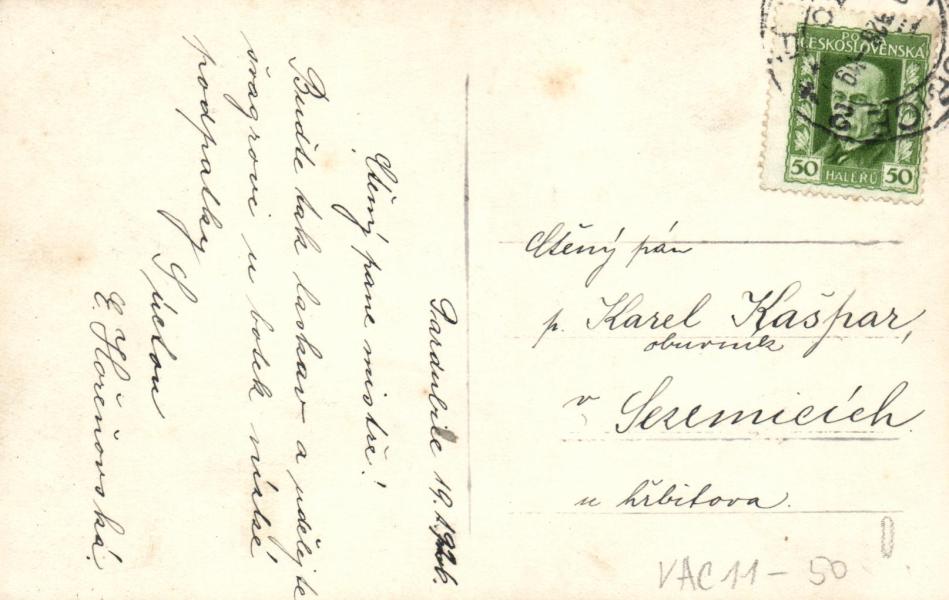 Pardubice 19. 1926.
Ctěný pane mistře!
Buďte tak laskav a udělejte
švagrovi u botek nízké
podpatky
S úctou
E. Hořeňovská.
POŠTA
ČESKOSLOVENSKÁ
50 HALÉŘŮ 50
Ctěný pán
p. Karel Kašpar,
obuvník
v Sezemicích
u hřbitova.
VAC 11 - 50